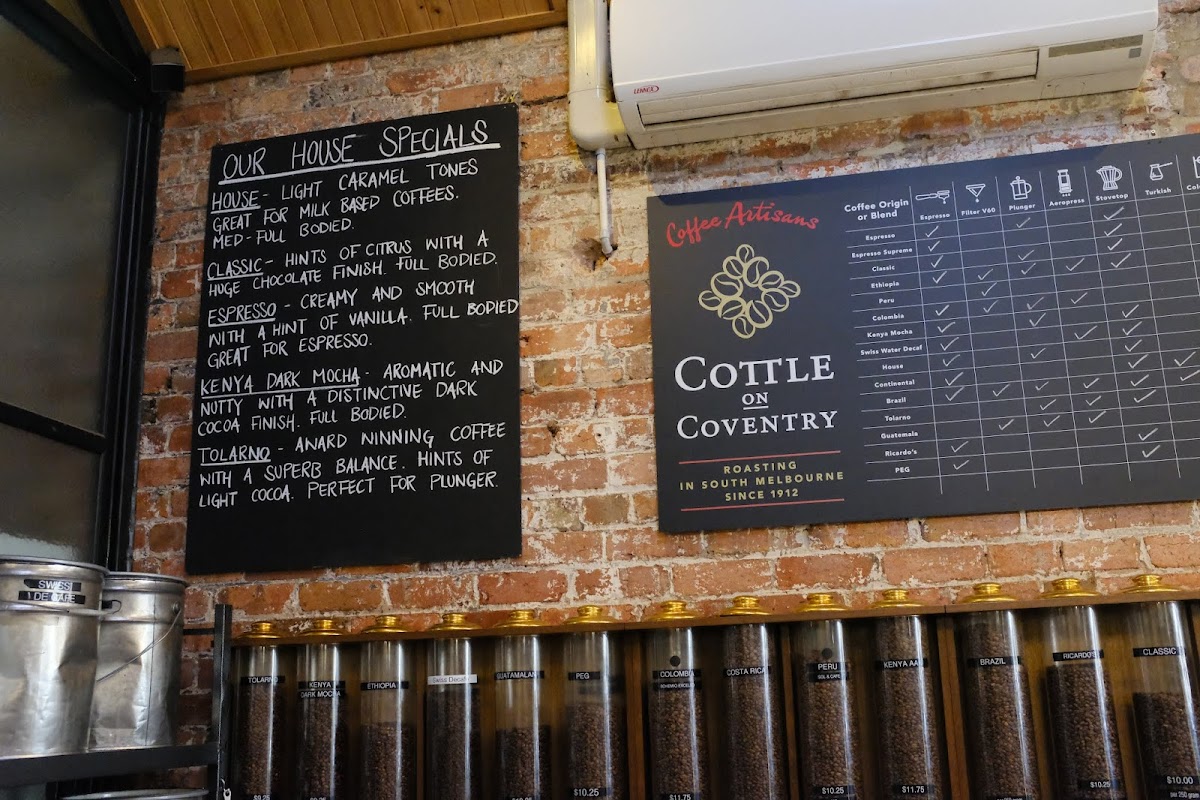 OUR HOUSE SPECIALS
HOUSE- LIGHT CARAMEL TONES
GREAT FOR MILK BASED COFFEES.
MED-FULL BODIED.
CLASSIC- HINTS OF CITRUS WITH A
HUGE CHOCOLATE FINISH. FULL BODIED.
ESPRESSO - CREAMY AND SMOOTH
WITH A HINT OF VANILLA. FULL BODIED
GREAT FOR ESPRESSO.
KENYA DARK MOCHA- AROMATIC AND
NUTTY WITH A DISTINCTIVE DARK
COCOA FINISH. FULL BODIED.
TOLARNO - AWARD NINNING COFFEE
WITH A SUPERB BALANCE. HINTS OF
LIGHT COCOA. PERFECT FOR PLUNGER.
LENNOX
Coffee Artisans
COTTLE
ON
COVENTRY
ROASTING
IN SOUTH MELBOURNE
SINCE 1912
Coffee Origin
or Blend
Espresso
Filter V60
Plunger
Aeropress
Stovetop
Turkish
Espresso
Espresso Supreme
Classic
Ethiopia
Peru
Colombia
Kenya Mocha
Swiss Water Decaf
House
Continental
Brazil
Tolarno
Guatemala
Ricardo's
PEG
SWISS
DE CAFE
TOLARNO
KENYA
DARK MOCHA
ETHIOPIA
Swiss Decaf
GUATAMALAN
PEG
COLOMBIA
COSTA RICA
PERU
KENYA AA
BRAZIL
RICARDO'S
CLASSIC
$9.25
$10.25
$10.25
$11.75
$10.25
$11.75
$10.25
$10.00
per 250 gram